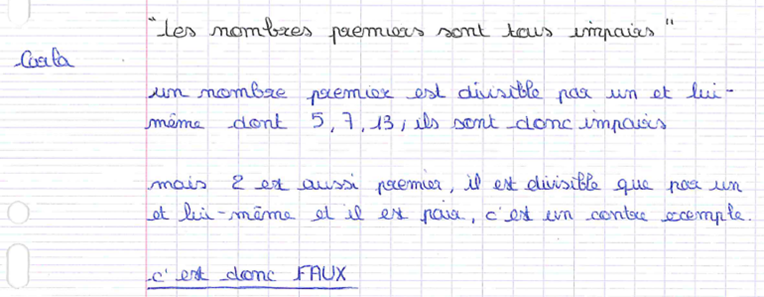 "Les nombres premiers sont tous impairs"
Carla
un nombre premier est divisible par un et lui-
même dont 5, 7, 13, ils sont donc impairs
mais 2 est aussi premier, il est divisible que par un
et lui-même et il est pair, c'est un contre exemple.
c'est donc FAUX